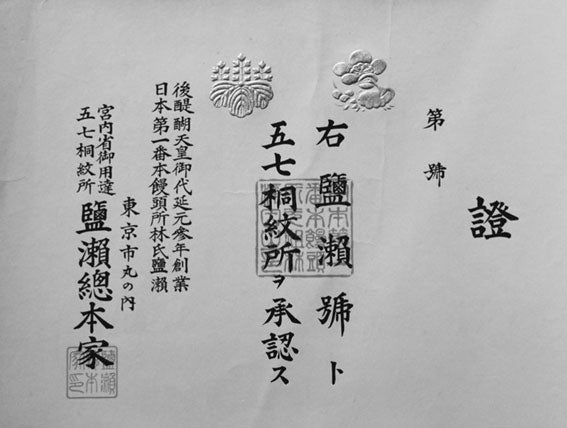 證
第 號
右 鹽瀨 號 ト
五七桐紋所ヲ承認ス
後醍醐天皇御代延元參年創業
日本第一番本饅頭所林氏鹽瀨
東京市丸の內
宮內省御用達
五七桐紋所
鹽瀨總本家